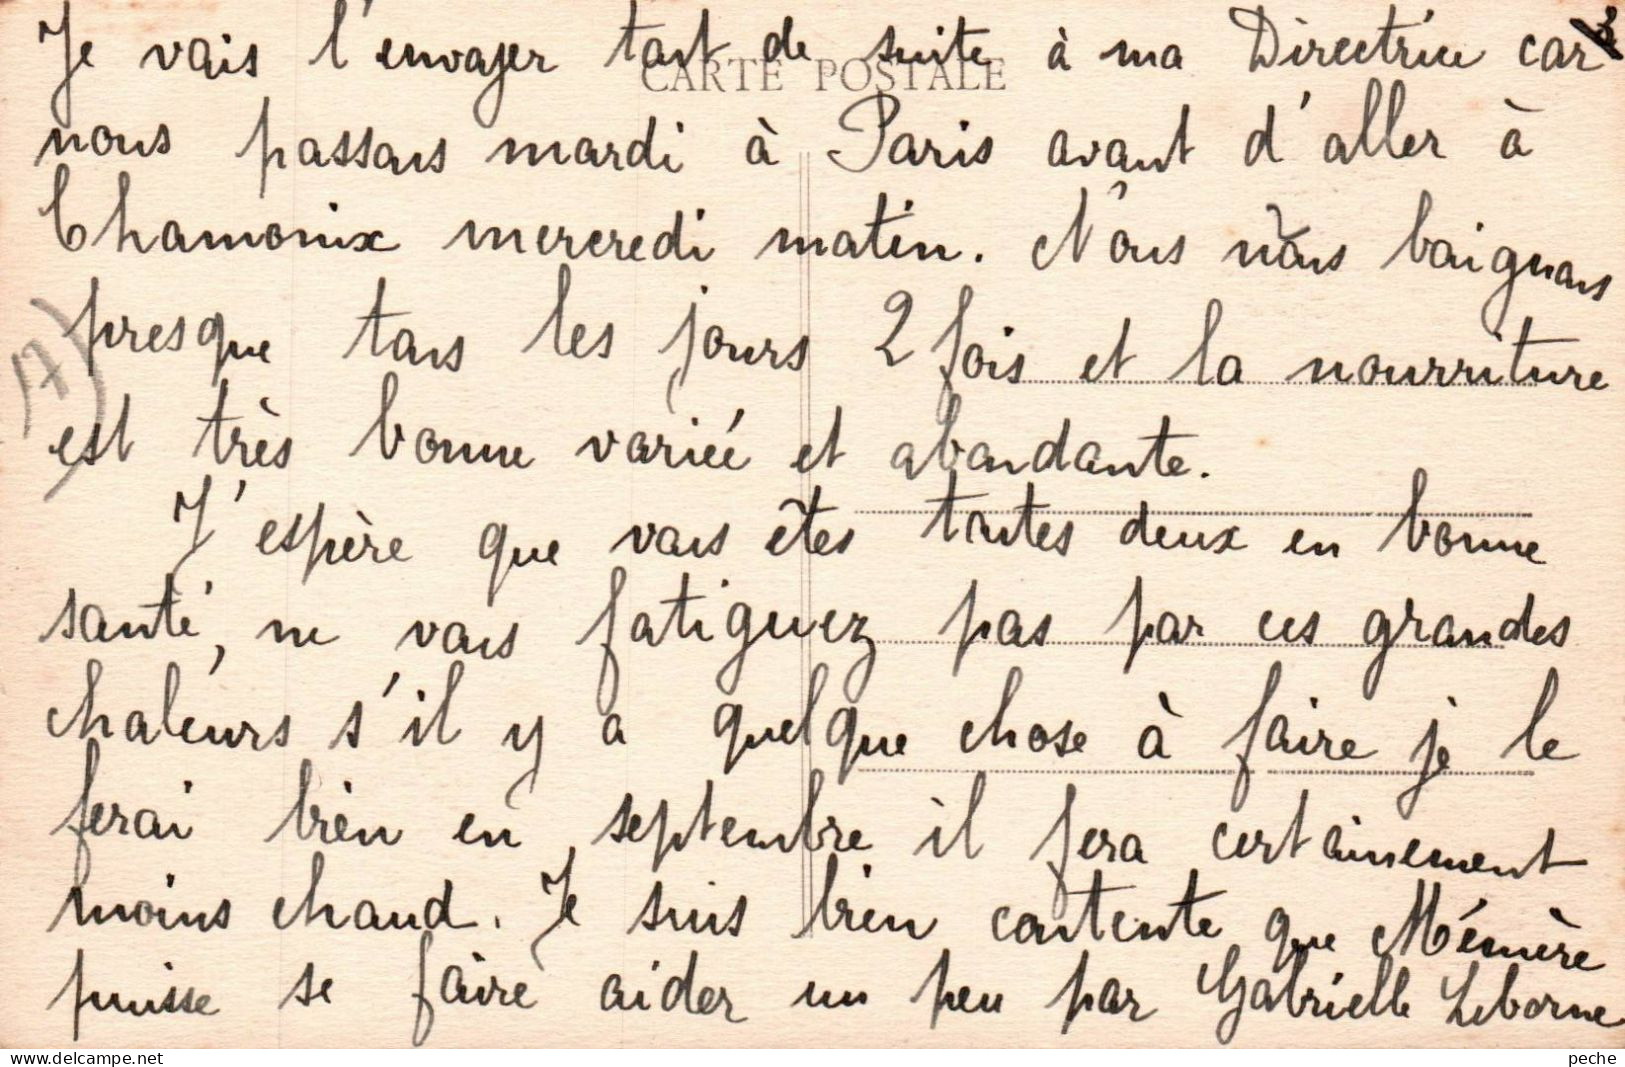 Je vais l'envoyer tout de suite à ma Directrice car
CARTE POSTALE
nous passons mardi à Paris avant d'aller à
Chamonix mercredi matin. Nous nous baignons
presque tous les jours 2 fois et la nourriture
17)
est très bonne variée et abondante.
J'espère que vous êtes toutes deux en bonne
santé, ne vous fatiguez pas par ces grandes
chaleurs s'il y a quelque chose à faire je le
ferai bien en septembre il fera certainement
moins chaud. Je suis bien contente que Mémère
puisse se faire aider un peu par Gabrielle Leborne
delcampe.net
peche